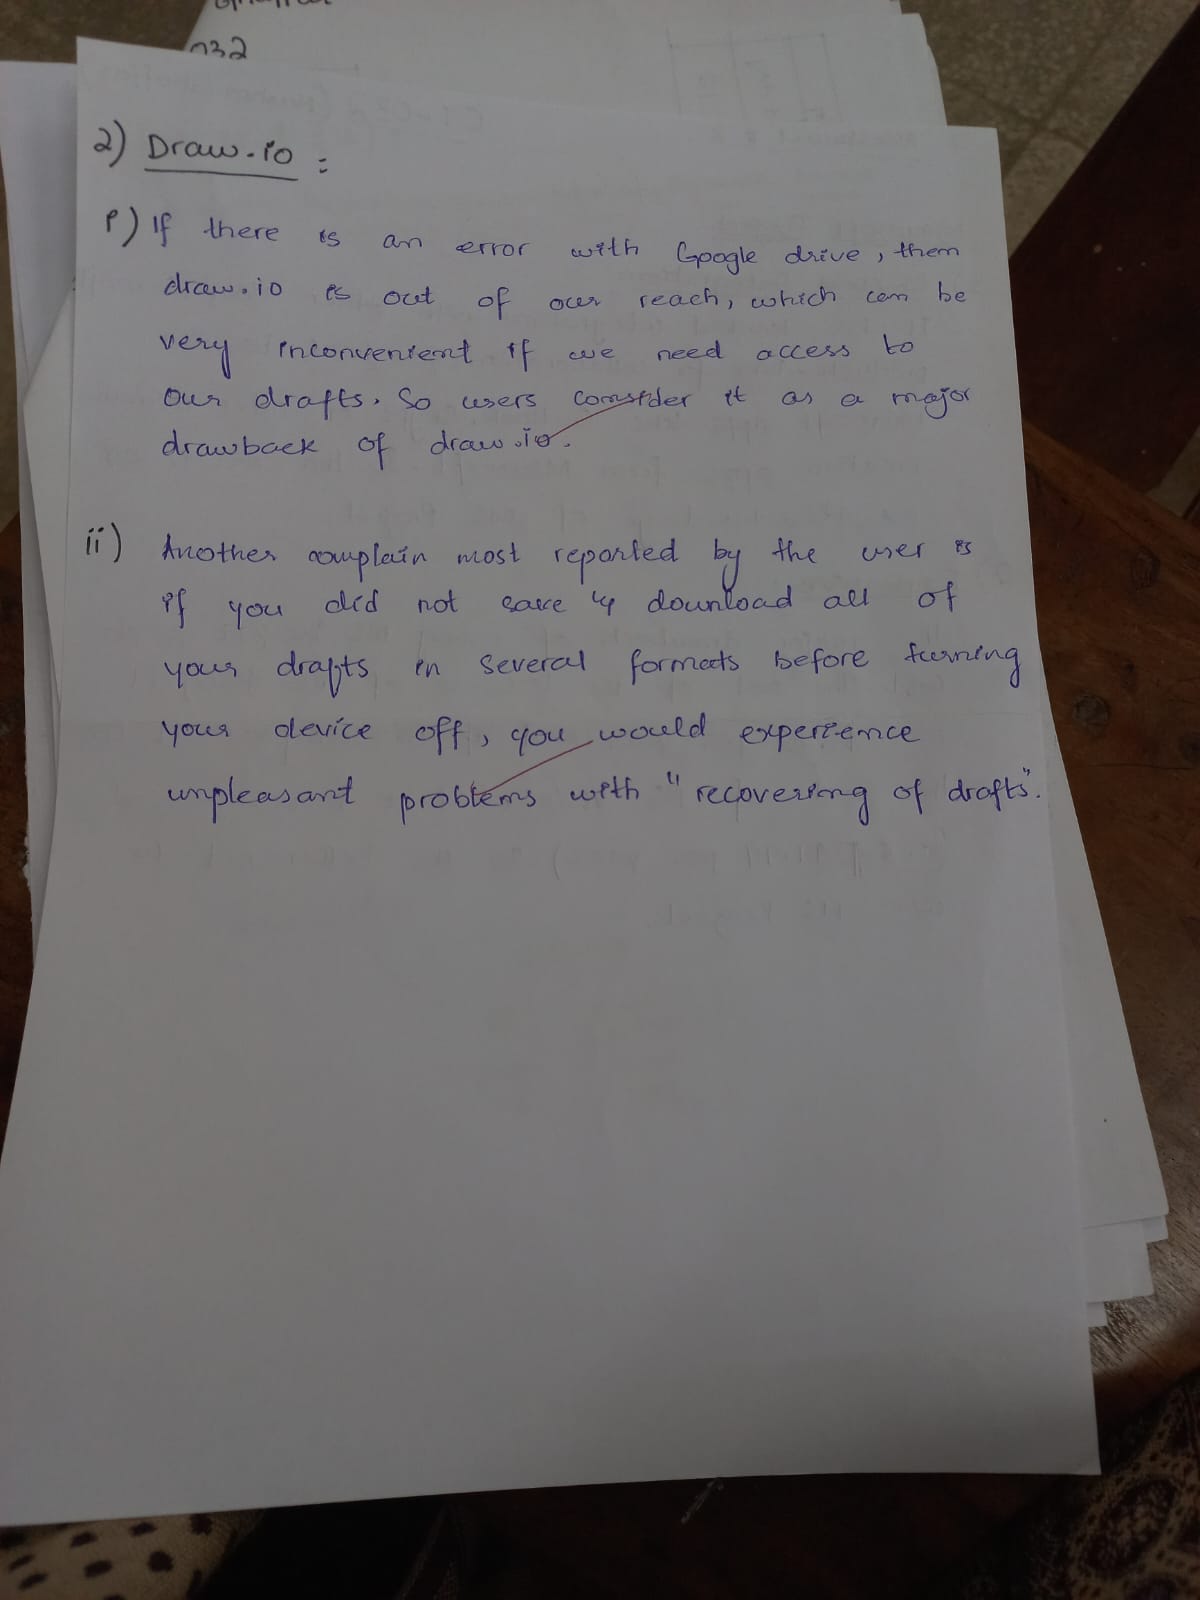 032
2) Draw.io :
i) If there is an error with Google drive, them
draw.io is out of our reach, which can be
very inconvenient if we need access to
our drafts. So users consider it as a major
drawback of draw.io.
ii) Another complain most reported by the user is
if you did not save & download all of
your drafts in several formats before turning
your device off, you would experience
unpleasant problems with "recovering of drafts".